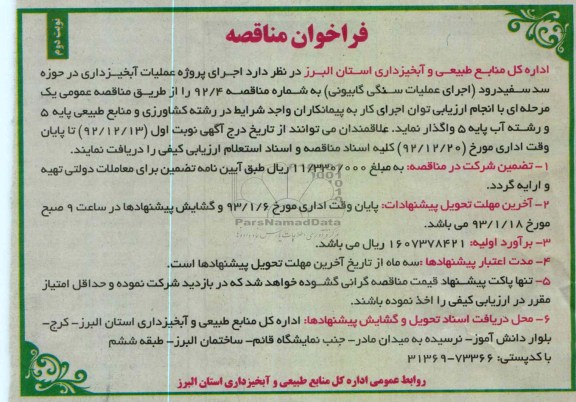 نوبت دوم
فراخوان مناقصه
اداره کل منابع طبیعی و آبخیزداری استان البرز در نظر دارد اجرای پروژه عملیات آبخیزداری در حوزه
سد سفیدرود (اجرای عملیات سنگی گابیونی) به شماره مناقصه ۹۲/۴ را از طریق مناقصه عمومی یک
مرحله ای با انجام ارزیابی توان اجرای کار به پیمانکاران واجد شرایط در رشته کشاورزی و منابع طبیعی پایه ۵
و رشته آب پایه ۵ واگذار نماید. علاقمندان می توانند از تاریخ درج آگهی نوبت اول (۹۲/۱۲/۱۳) تا پایان
وقت اداری مورخ (۹۲/۱۲/۲۰) کلیه اسناد مناقصه و اسناد استعلام ارزیابی کیفی را دریافت نمایند.
۱- تضمین شرکت در مناقصه: به مبلغ ۱۱/۳۳۰/۰۰۰ ریال طبق آیین نامه تضمین برای معاملات دولتی تهیه
و ارایه گردد.
۲- آخرین مهلت تحویل پیشنهادات: پایان وقت اداری مورخ ۹۳/۱/۶ و گشایش پیشنهادها در ساعت ۹ صبح
مورخ ۹۳/۱/۱۸ می باشد.
ParsNamadData
۳- برآورد اولیه: ۱۶۰۷۳۷۸۴۲۱ ریال می باشد.
۴- مدت اعتبار پیشنهادها: سه ماه از تاریخ آخرین مهلت تحویل پیشنهادها است.
۵- تنها پاکت پیشنهاد قیمت مناقصه گرانی گشوده خواهد شد که در بازدید شرکت نموده و حداقل امتیاز
مقرر در ارزیابی کیفی را اخذ نموده باشند.
۶- محل دریافت اسناد تحویل و گشایش پیشنهادها: اداره کل منابع طبیعی و آبخیزداری استان البرز- کرج-
بلوار دانش آموز- نرسیده به میدان مادر- جنب نمایشگاه قائم- ساختمان البرز- طبقه ششم
با کدپستی: ۷۳۳۶۶-۳۱۳۶۹
روابط عمومی اداره کل منابع طبیعی و آبخیزداری استان البرز